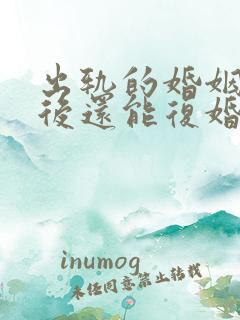 出轨的婚姻
後還能復婚
inumog
未经同意禁止转载